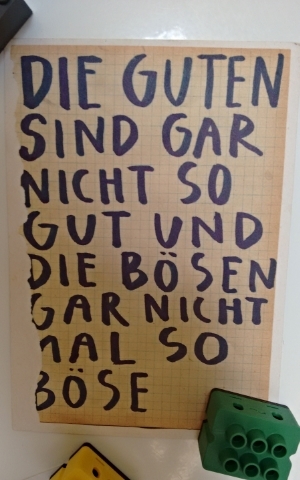 DIE GUTEN
SIND GAR
NICHT SO
GUT UND
DIE BÖSEN
GAR NICHT
MAL SO
BÖSE